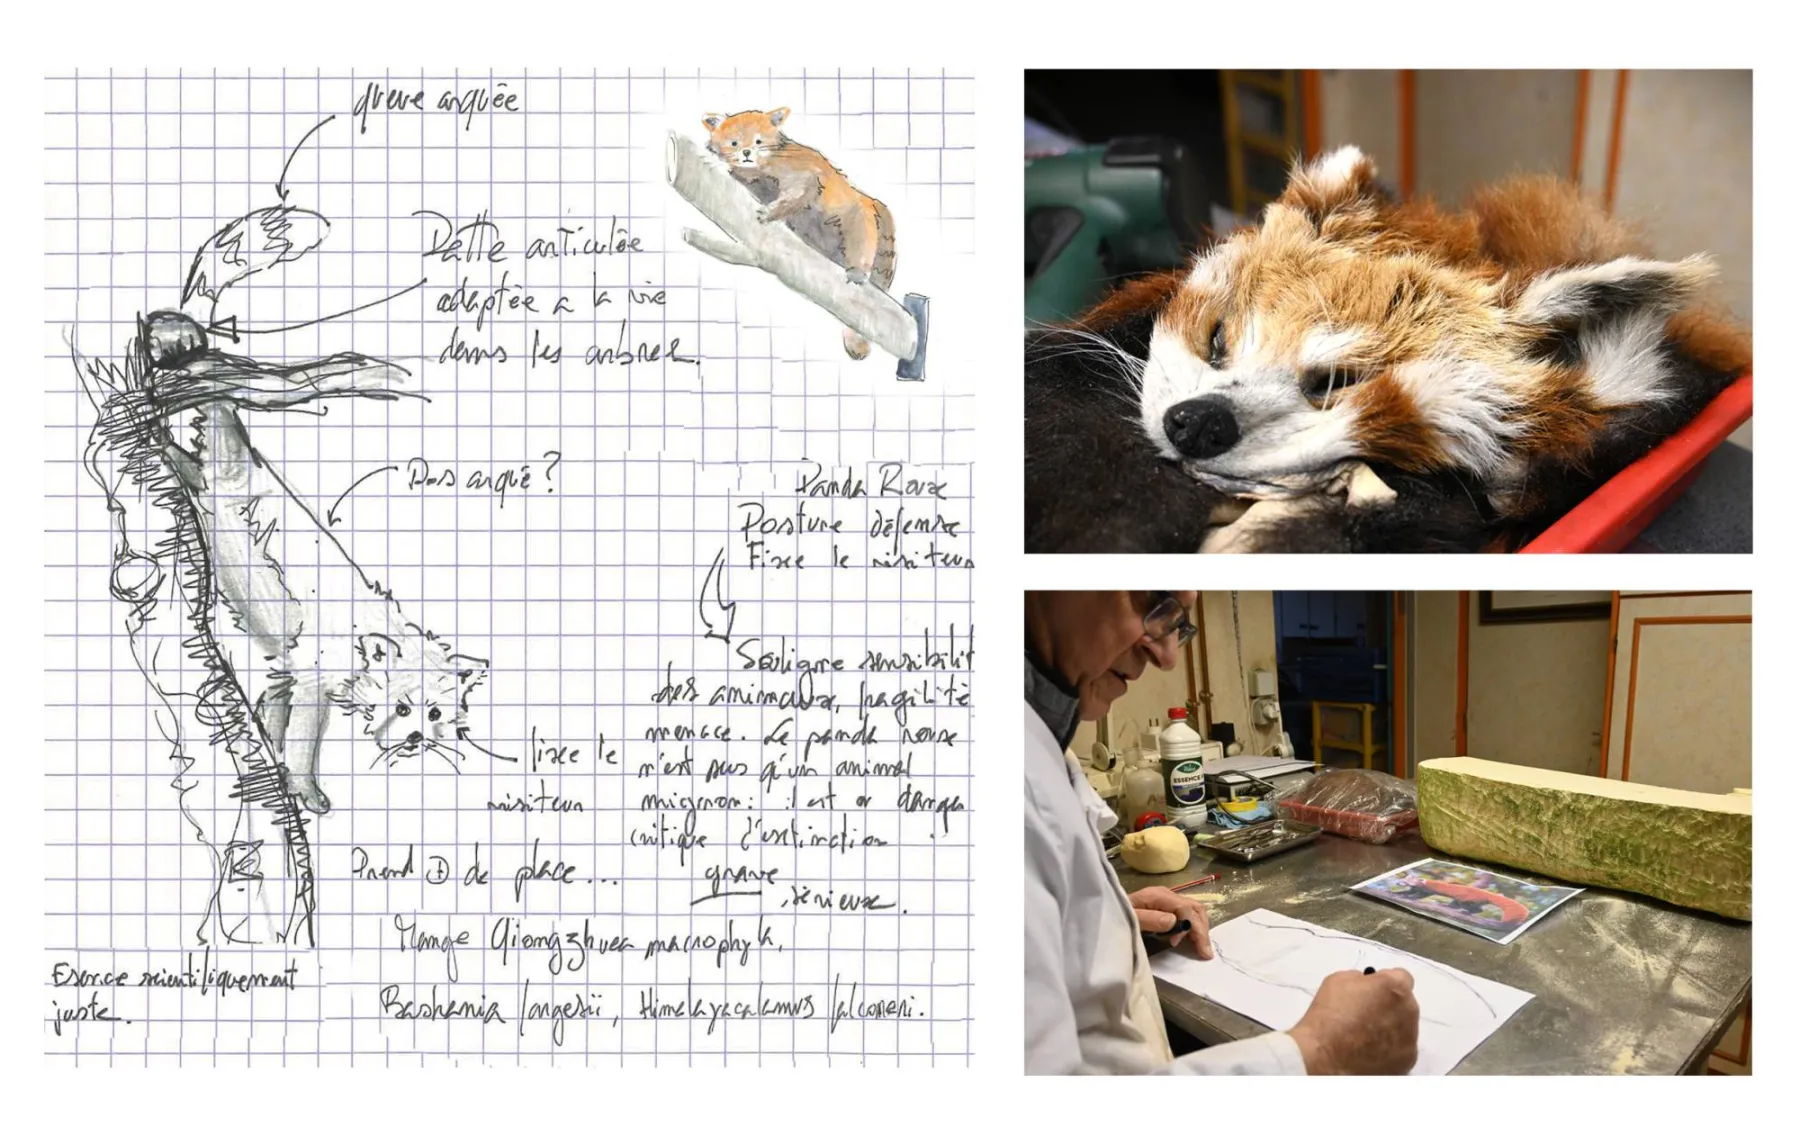 queue arquée
Patte articulée
adaptée a la vie
dans les arbres.
Dos arqué ?
Panda Roux
Posture défense
Fixe le visiteur
Souligne sensibilit
des animaux, fragilité
menace. Le panda roux
n'est pas qu'un animal
mignon : il est en danger
critique d'extinction !
grave
, sérieux.
fixe le
visiteur
Prend ⊕ de place...
Mange Qiongzhuea macrophyla,
Bashania fangesii, Himalayacalamus falconeri.
Essence scientifiquement
juste.
ESSENCE